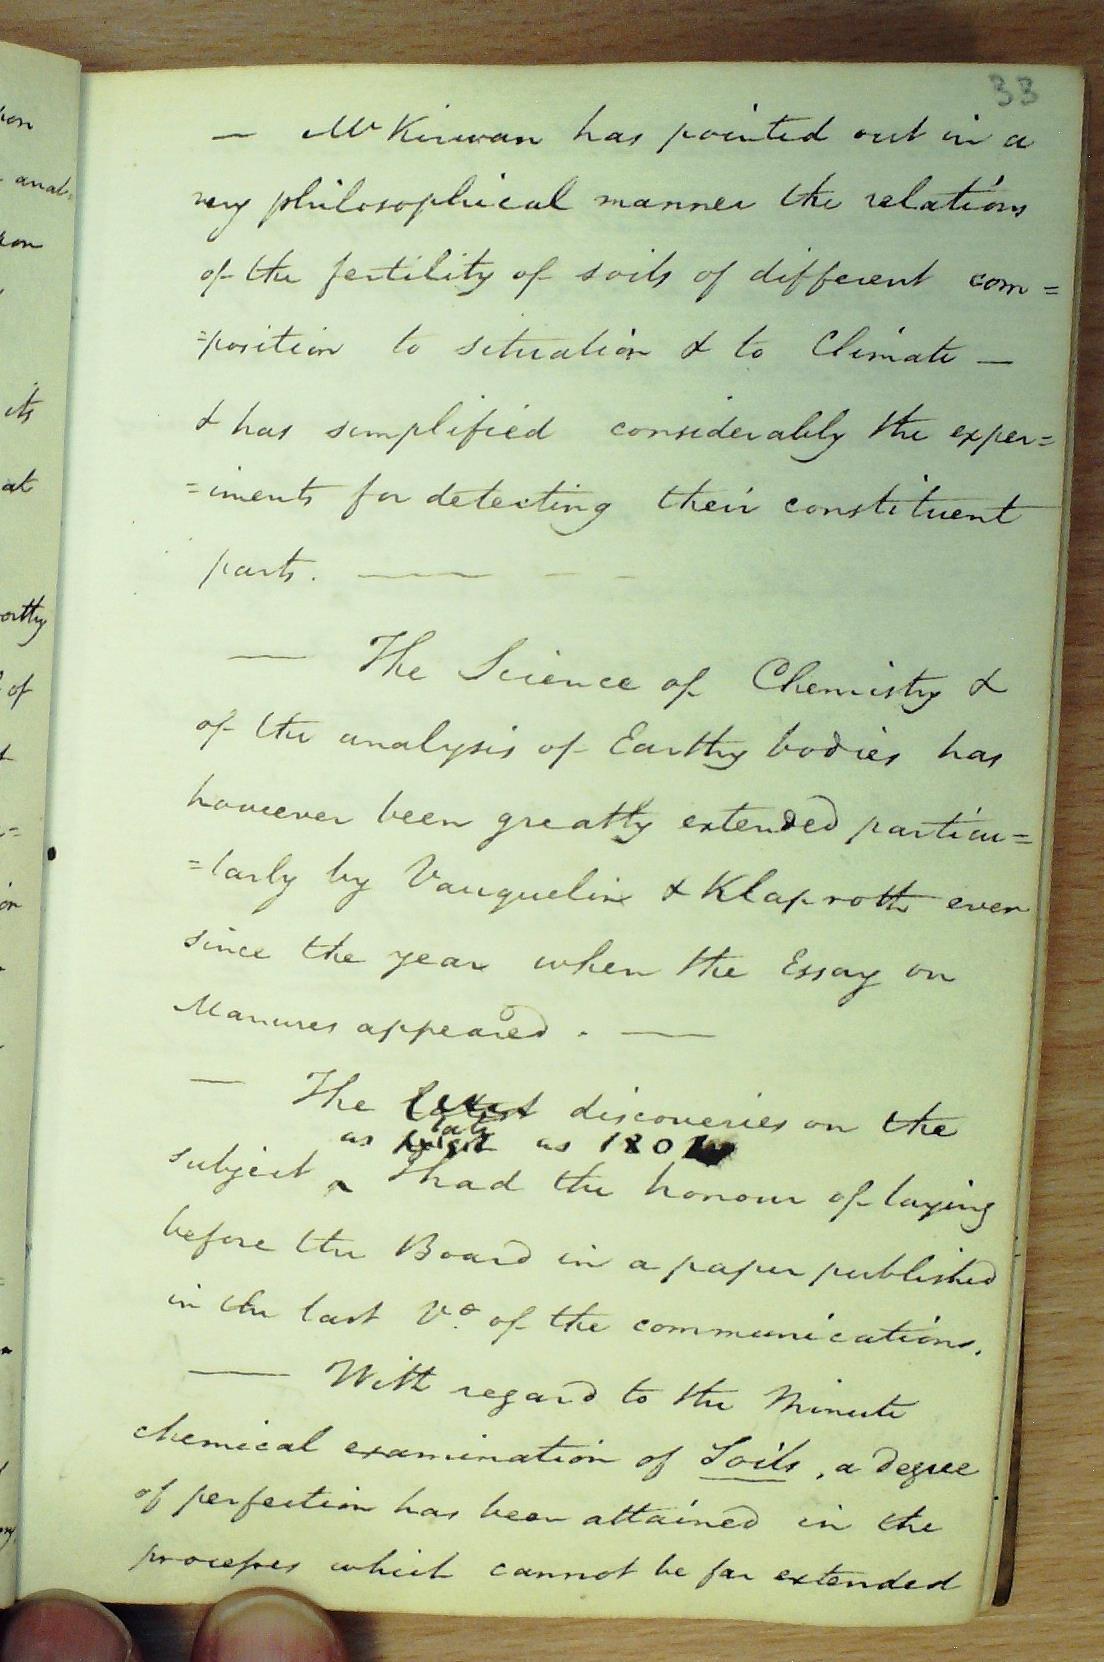 33
— Mr Kirwan has pointed out in a
very philosophical manner the relations
of the fertility of soils of different com=
=position to situation & to Climate —
& has simplified considerably the exper=
=iments for detecting their constituent
parts. — — —
— The Science of Chemistry &
of the analysis of Earthy bodies has
however been greatly extended particu=
=larly by Vauquelin & Klaproth ever
since the year when the Essay on
Manures appeared. —
— The latest discoveries on the
as late as 180
subject ^ I had the honour of laying
before the Board in a paper published
in the last Vo. of the communications.
— With regard to the Minute
chemical examination of Soils, a degree
of perfection has been attained in the
processes which cannot be far extended
pon
anal=
its
at
of